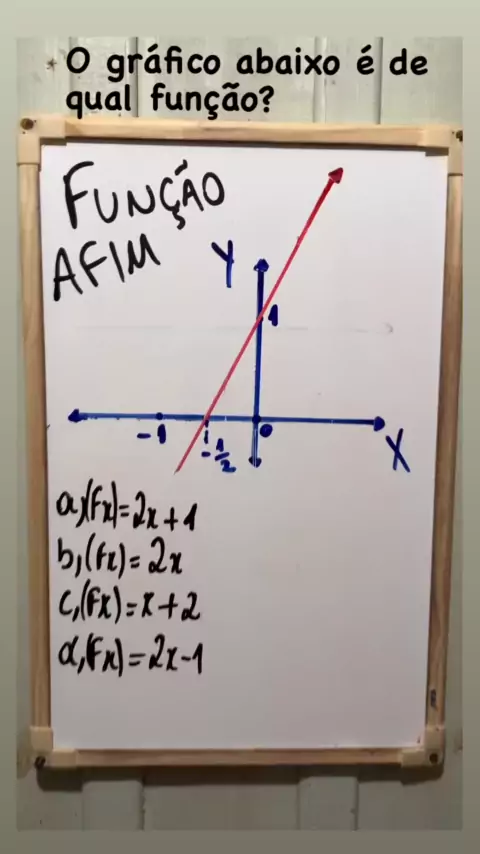 * O gráfico abaixo é de
qual função?
FUNÇÃO
AFIM
Y
1
-1
-1/2
0
X
a,(fx)=2x+1
b,(fx)=2x
c,(fx)=x+2
d,(fx)=2x-1